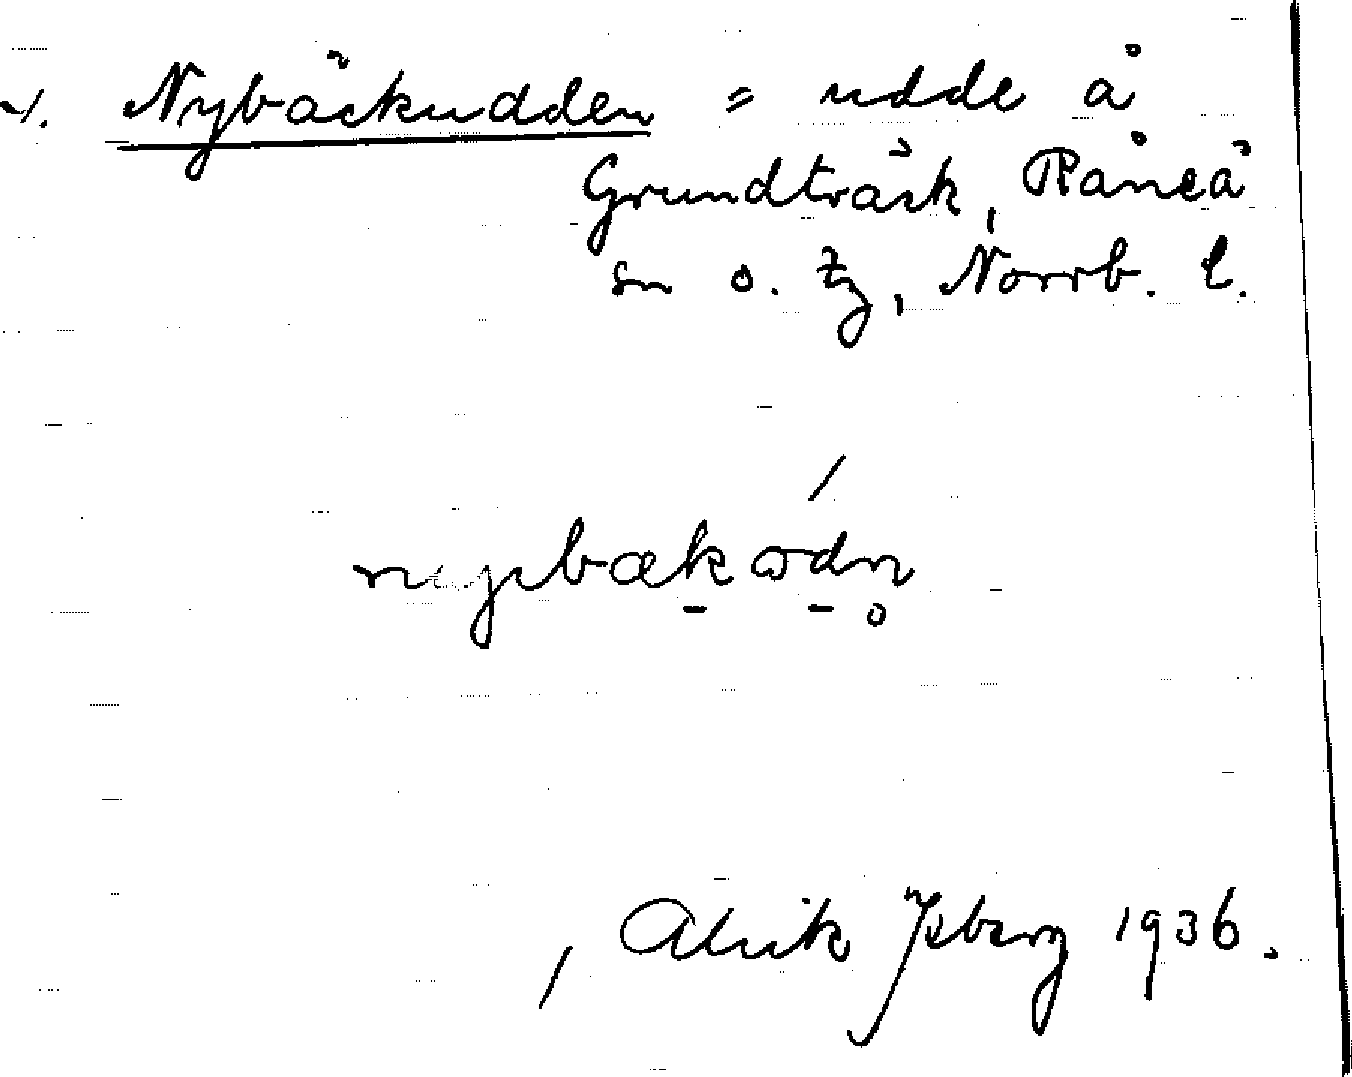 Nybäckudden = udde å
Grundträsk, Råneå
sn o. tg, Norrb. l.
Alrik Ysberg 1936.